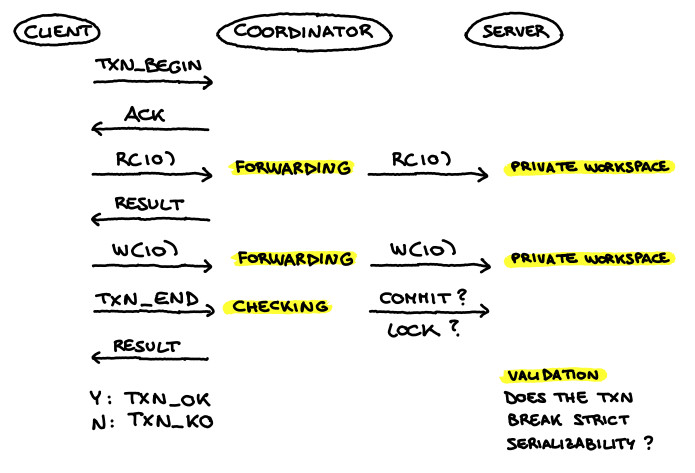 CLIENT COORDINATOR SERVER
TXN_BEGIN
ACK
R(10) FORWARDING R(10) PRIVATE WORKSPACE
RESULT
W(10) FORWARDING W(10) PRIVATE WORKSPACE
TXN_END CHECKING COMMIT?
LOCK?
RESULT
VALIDATION
Y: TXN_OK DOES THE TXN
N: TXN_KO BREAK STRICT
SERIALIZABILITY?